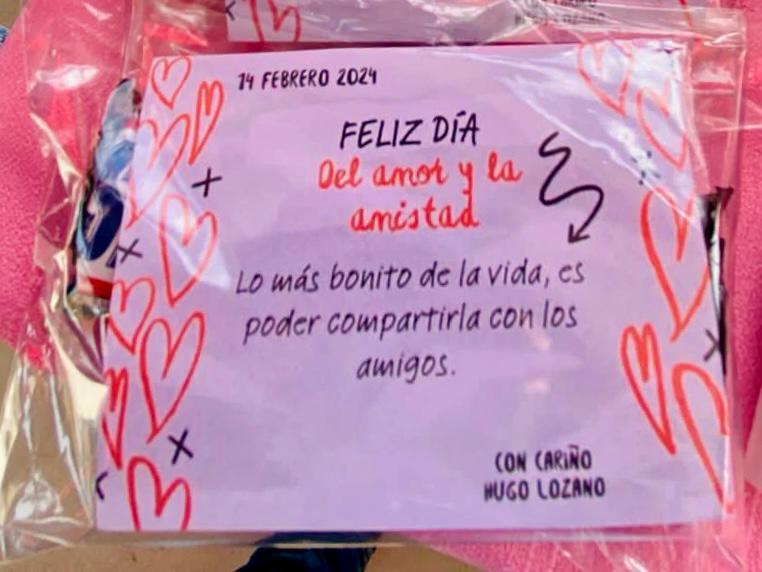 HUGO LOZANO
14 FEBRERO 2024
FELIZ DÍA
Del amor y la
amistad
Lo más bonito de la vida, es
poder compartirla con los
amigos.
CON CARIÑO
HUGO LOZANO